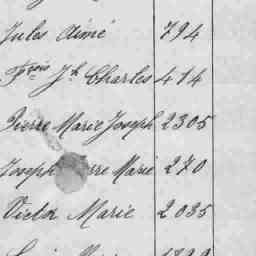 Jules Aimé 794
Fçois Jh Charles 414
Pierre Marie Joseph 2305
Joseph Marie 270
Victor Marie 2035